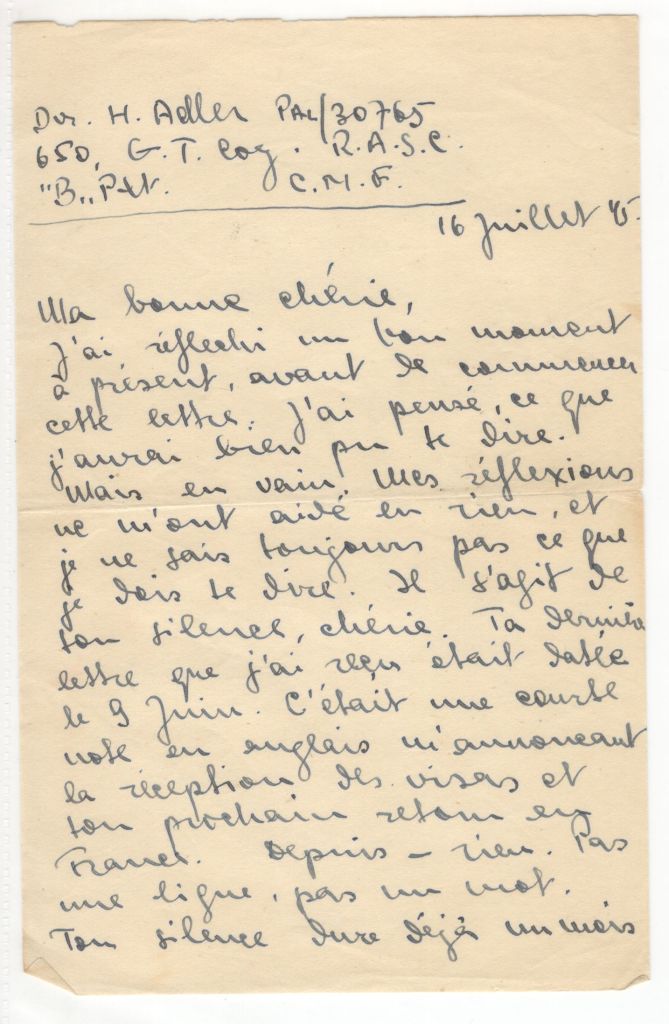 Dvr. H. Adler PAL/30765
650, G.T. Coy. R.A.S.C.
"B" Plt. C.M.F.
16 Juillet 45.
Ma bonne chérie,
J'ai réflechi un bon moment
à présent, avant de commencer
cette lettre. J'ai pensé, ce que
j'aurai bien pu te dire.
Mais en vain. Mes réflexions
ne m'ont aidé en rien, et
je ne sais toujours pas ce que
je dois te dire. Il s'agit de
ton silence, chérie. Ta dernière
lettre que j'ai reçu était datée
le 9 Juin. C'était une courte
note en anglais m'annonçant
la réception des visas et
ton prochain retour en
France. Depuis – rien. Pas
une ligne, pas un mot.
Ton silence dure déjà un mois